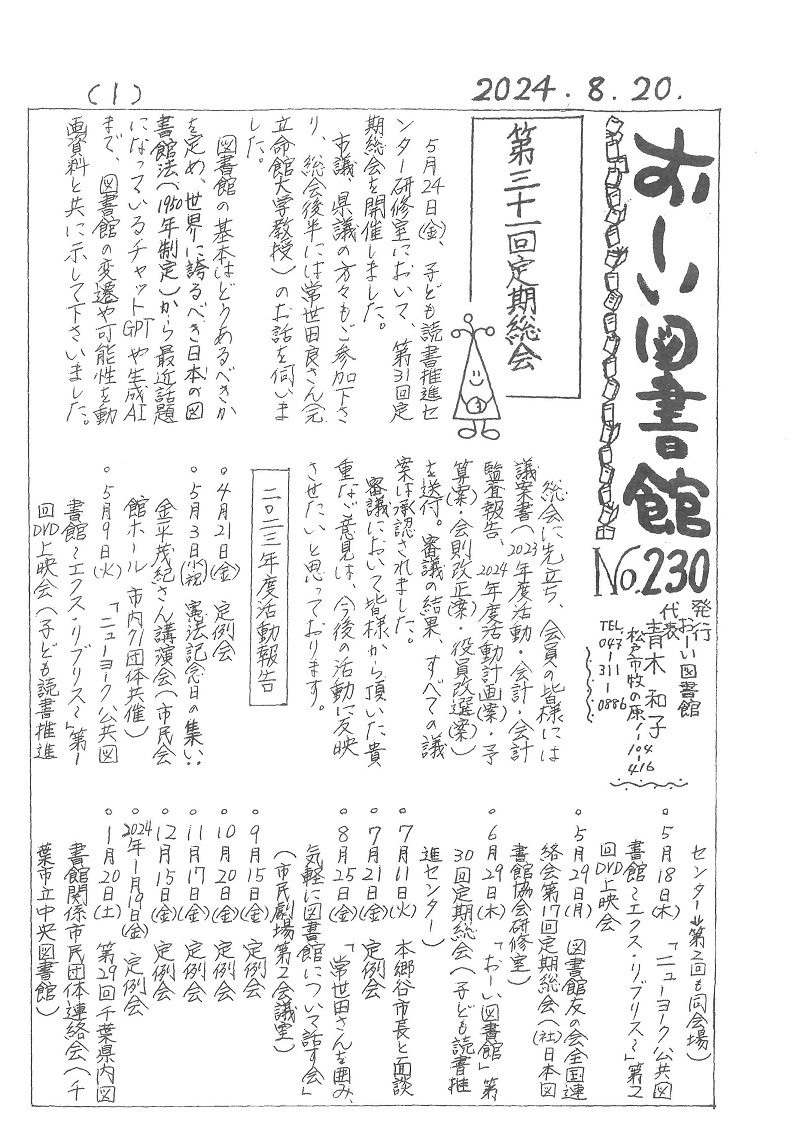 (1)
2024.8.20.
おーい図書館
No.230
発行
おーい図書館
代表 青木和子
松戸市牧の原1-104-416
TEL
047-311-0886
第三十一回定期総会
5月24日(金)、子ども読書推進セ
ンター研修室において、第31回定
期総会を開催しました。
市議、県議の方々もご参加下さ
り、総会後半には常世田良さん(元
立命館大学教授)のお話を伺いま
した。
図書館の基本はどうあるべきか
を定め、世界に誇るべき日本の図
書館法(1950年制定)から最近話題
になっているチャットGPTや生成AI
まで、図書館の変遷や可能性を動
画資料と共に示して下さいました。
総会に先立ち、会員の皆様には
議案書(2023年度活動・会計・会計
監査報告、2024年度活動計画(案)・予
算(案)・会則改正(案)・役員改選(案))
を送付。審議の結果、すべての議
案は承認されました。
審議において皆様から頂いた貴
重なご意見は、今後の活動に反映
させたいと思っております。
二〇二三年度活動報告
○4月21日(金) 定例会
○5月3日(水・祝) 憲法記念日の集い
金平茂紀さん講演会(市民会
館ホール 市内91団体共催)
○5月9日(火) 「ニューヨーク公共図
書館〜エクス・リブリス〜」第1
回DVD上映会(子ども読書推進
センター※第2回も同会場)
○5月18日(木) 「ニューヨーク公共図
書館〜エクス・リブリス〜」第2
回DVD上映会
○5月29日(月) 図書館友の会全国連
絡会第17回定期総会((社)日本図
書館協会研修室)
○6月29日(木) 「おーい図書館」第
30回定期総会(子ども読書推
進センター)
○7月11日(火) 本郷谷市長と面談
○7月21日(金) 定例会
○8月25日(金) 「常世田さんを囲み、
気軽に図書館について話す会」
(市民劇場第2会議室)
○9月15日(金) 定例会
○10月20日(金) 定例会
○11月17日(金) 定例会
○12月15日(金) 定例会
○2024年1月19日(金) 定例会
○1月20日(土) 第29回千葉県内図
書館関係市民団体連絡会(千
葉市立中央図書館)